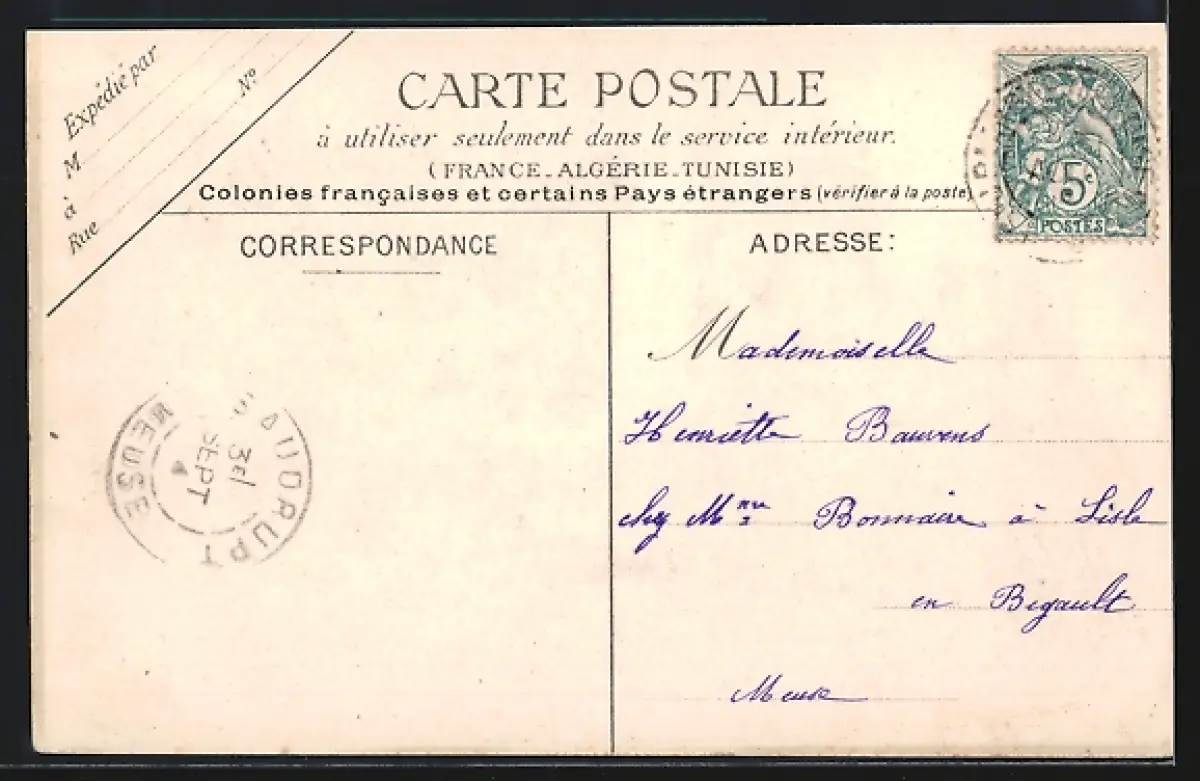 Expédié par
M
Nº
à
Rue
CARTE POSTALE
à utiliser seulement dans le service intérieur.
(FRANCE_ALGÉRIE_TUNISIE)
Colonies françaises et certains Pays étrangers (vérifier à la poste)
5c
POSTES
CORRESPONDANCE
ADRESSE:
Mademoiselle
Henriette Bauvens
chez Mme Bonnaire à Lisle
en Bigault
Meuse
SEPT
MEUSE